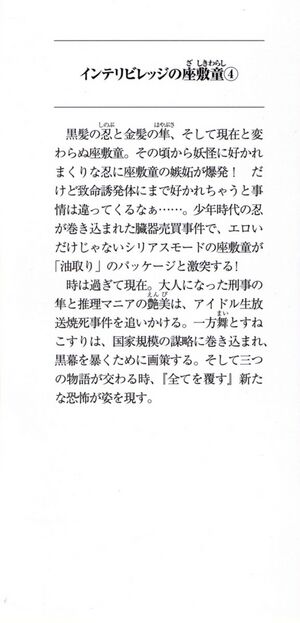 インテリビレッジの座敷童④
黒髪の忍と金髪の隼、そして現在と変
わらぬ座敷童。その頃から妖怪に好かれ
まくりな忍に座敷童の嫉妬が爆発！　だ
けど致命誘発体にまで好かれちゃうと事
情は違ってくるなぁ……。少年時代の忍
が巻き込まれた臓器売買事件で、エロい
だけじゃないシリアスモードの座敷童が
「油取り」のパッケージと激突する！
時は過ぎて現在。大人になった刑事の
隼と推理マニアの艶美は、アイドル生放
送焼死事件を追いかける。一方舞とすね
こすりは、国家規模の謀略に巻き込まれ、
黒幕を暴くために画策する。そして三つ
の物語が交わる時、『全てを覆す』新た
な恐怖が姿を現す。